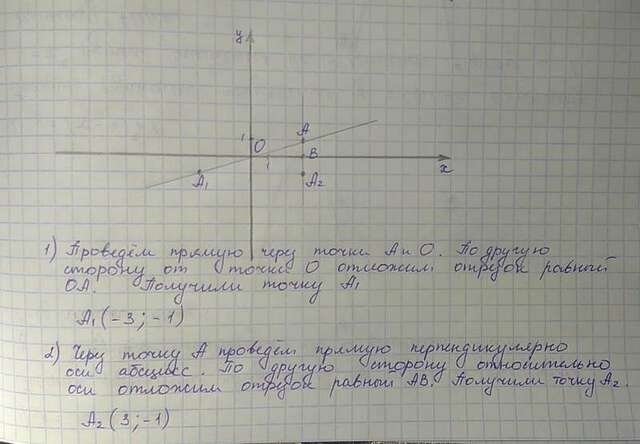 y
1
O
A
B
1
x
A₁
A₂
1) Проведём прямую через точки A и O. По другую
сторону от точки O отложим отрезок равный
OA. Получили точку A₁
A₁(-3;-1)
2) Через точку A проведём прямую перпендикулярно
оси абсцисс. По другую сторону относительно
оси отложим отрезок равный AB. Получили точку A₂.
A₂(3;-1)